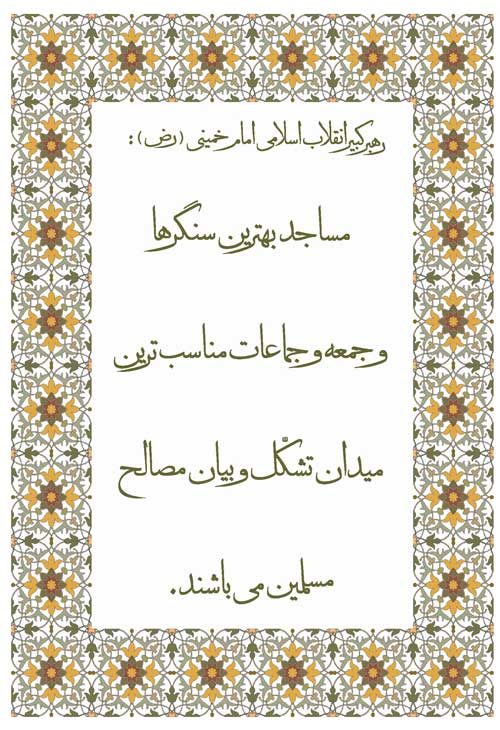 رهبر کبیر انقلاب اسلامی امام خمینی (رض) :
مساجد بهترین سنگرها
و جمعه و جماعات مناسب ترین
میدان تشکَّل و بیان مصالح
مسلمین می باشند.